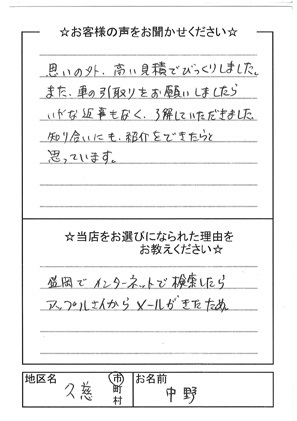 ☆お客様の声をお聞かせください☆
思いの外、高い見積でびっくりしました。
また、車の引取りをお願いしましたら
いやな返事もなく、了解していただきました。
知り合いにも、紹介をできたらと
思っています。
☆当店をお選びになられた理由を
お教えください☆
盛岡でインターネットで検索したら
アップルさんからメールがきたため。
地区名
久慈
市
町
村
お名前
中野